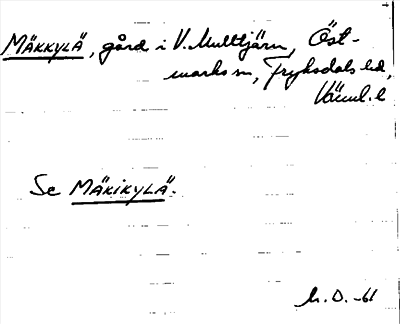 MÄKKYLÄ, gård i V. Multtjärn, Öst-
marks sn, Fryksdals hd,
Värml. l
Se MÄKIKYLÄ.
h. D. -61